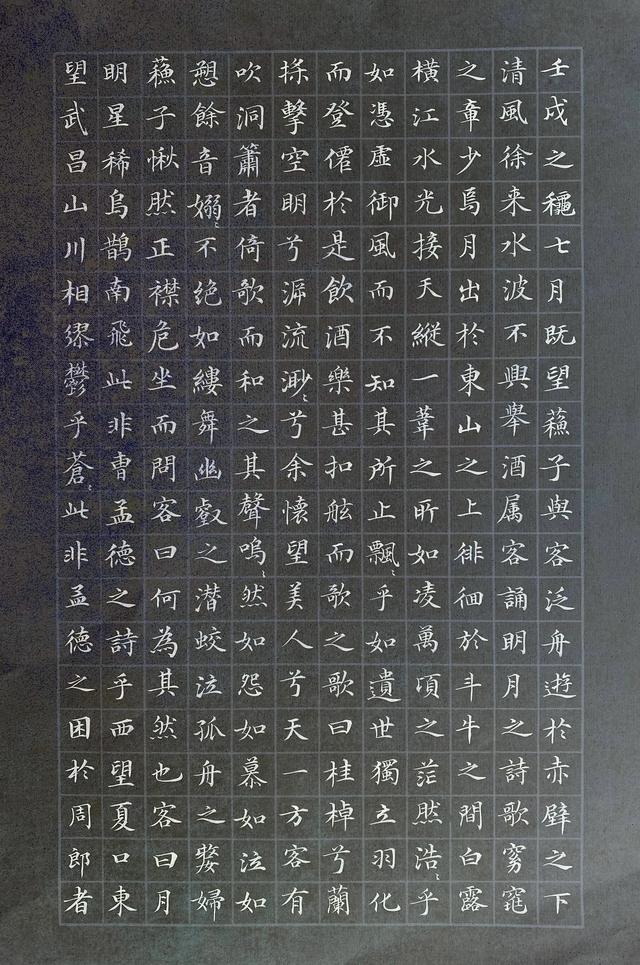 壬戌之龝七月既望蘓子與客泛舟遊於赤壁之下
清風徐来水波不興舉酒属客誦明月之詩歌窈窕
之章少焉月出於東山之上徘徊於斗牛之間白露
橫江水光接天縱一葦之所如凌萬頃之茫然浩〻乎
如憑虛御風而不知其所止飄〻乎如遺世獨立羽化
而登僊於是飲酒樂甚扣舷而歌之歌曰桂棹兮蘭
擊空明兮泝流渺〻兮余懷望美人兮天一方客有
吹洞簫者倚歌而和之其聲嗚〻然如怨如慕如泣如
愬餘音嫋〻不絕如縷舞幽壑之潜蛟泣孤舟之嫠婦
蘓子愀然正襟危坐而問客曰何為其然也客曰月
明星稀烏鵲南飛此非曹孟德之詩乎西望夏口東
望武昌山川相繆鬱乎蒼〻此非孟德之困於周郎者